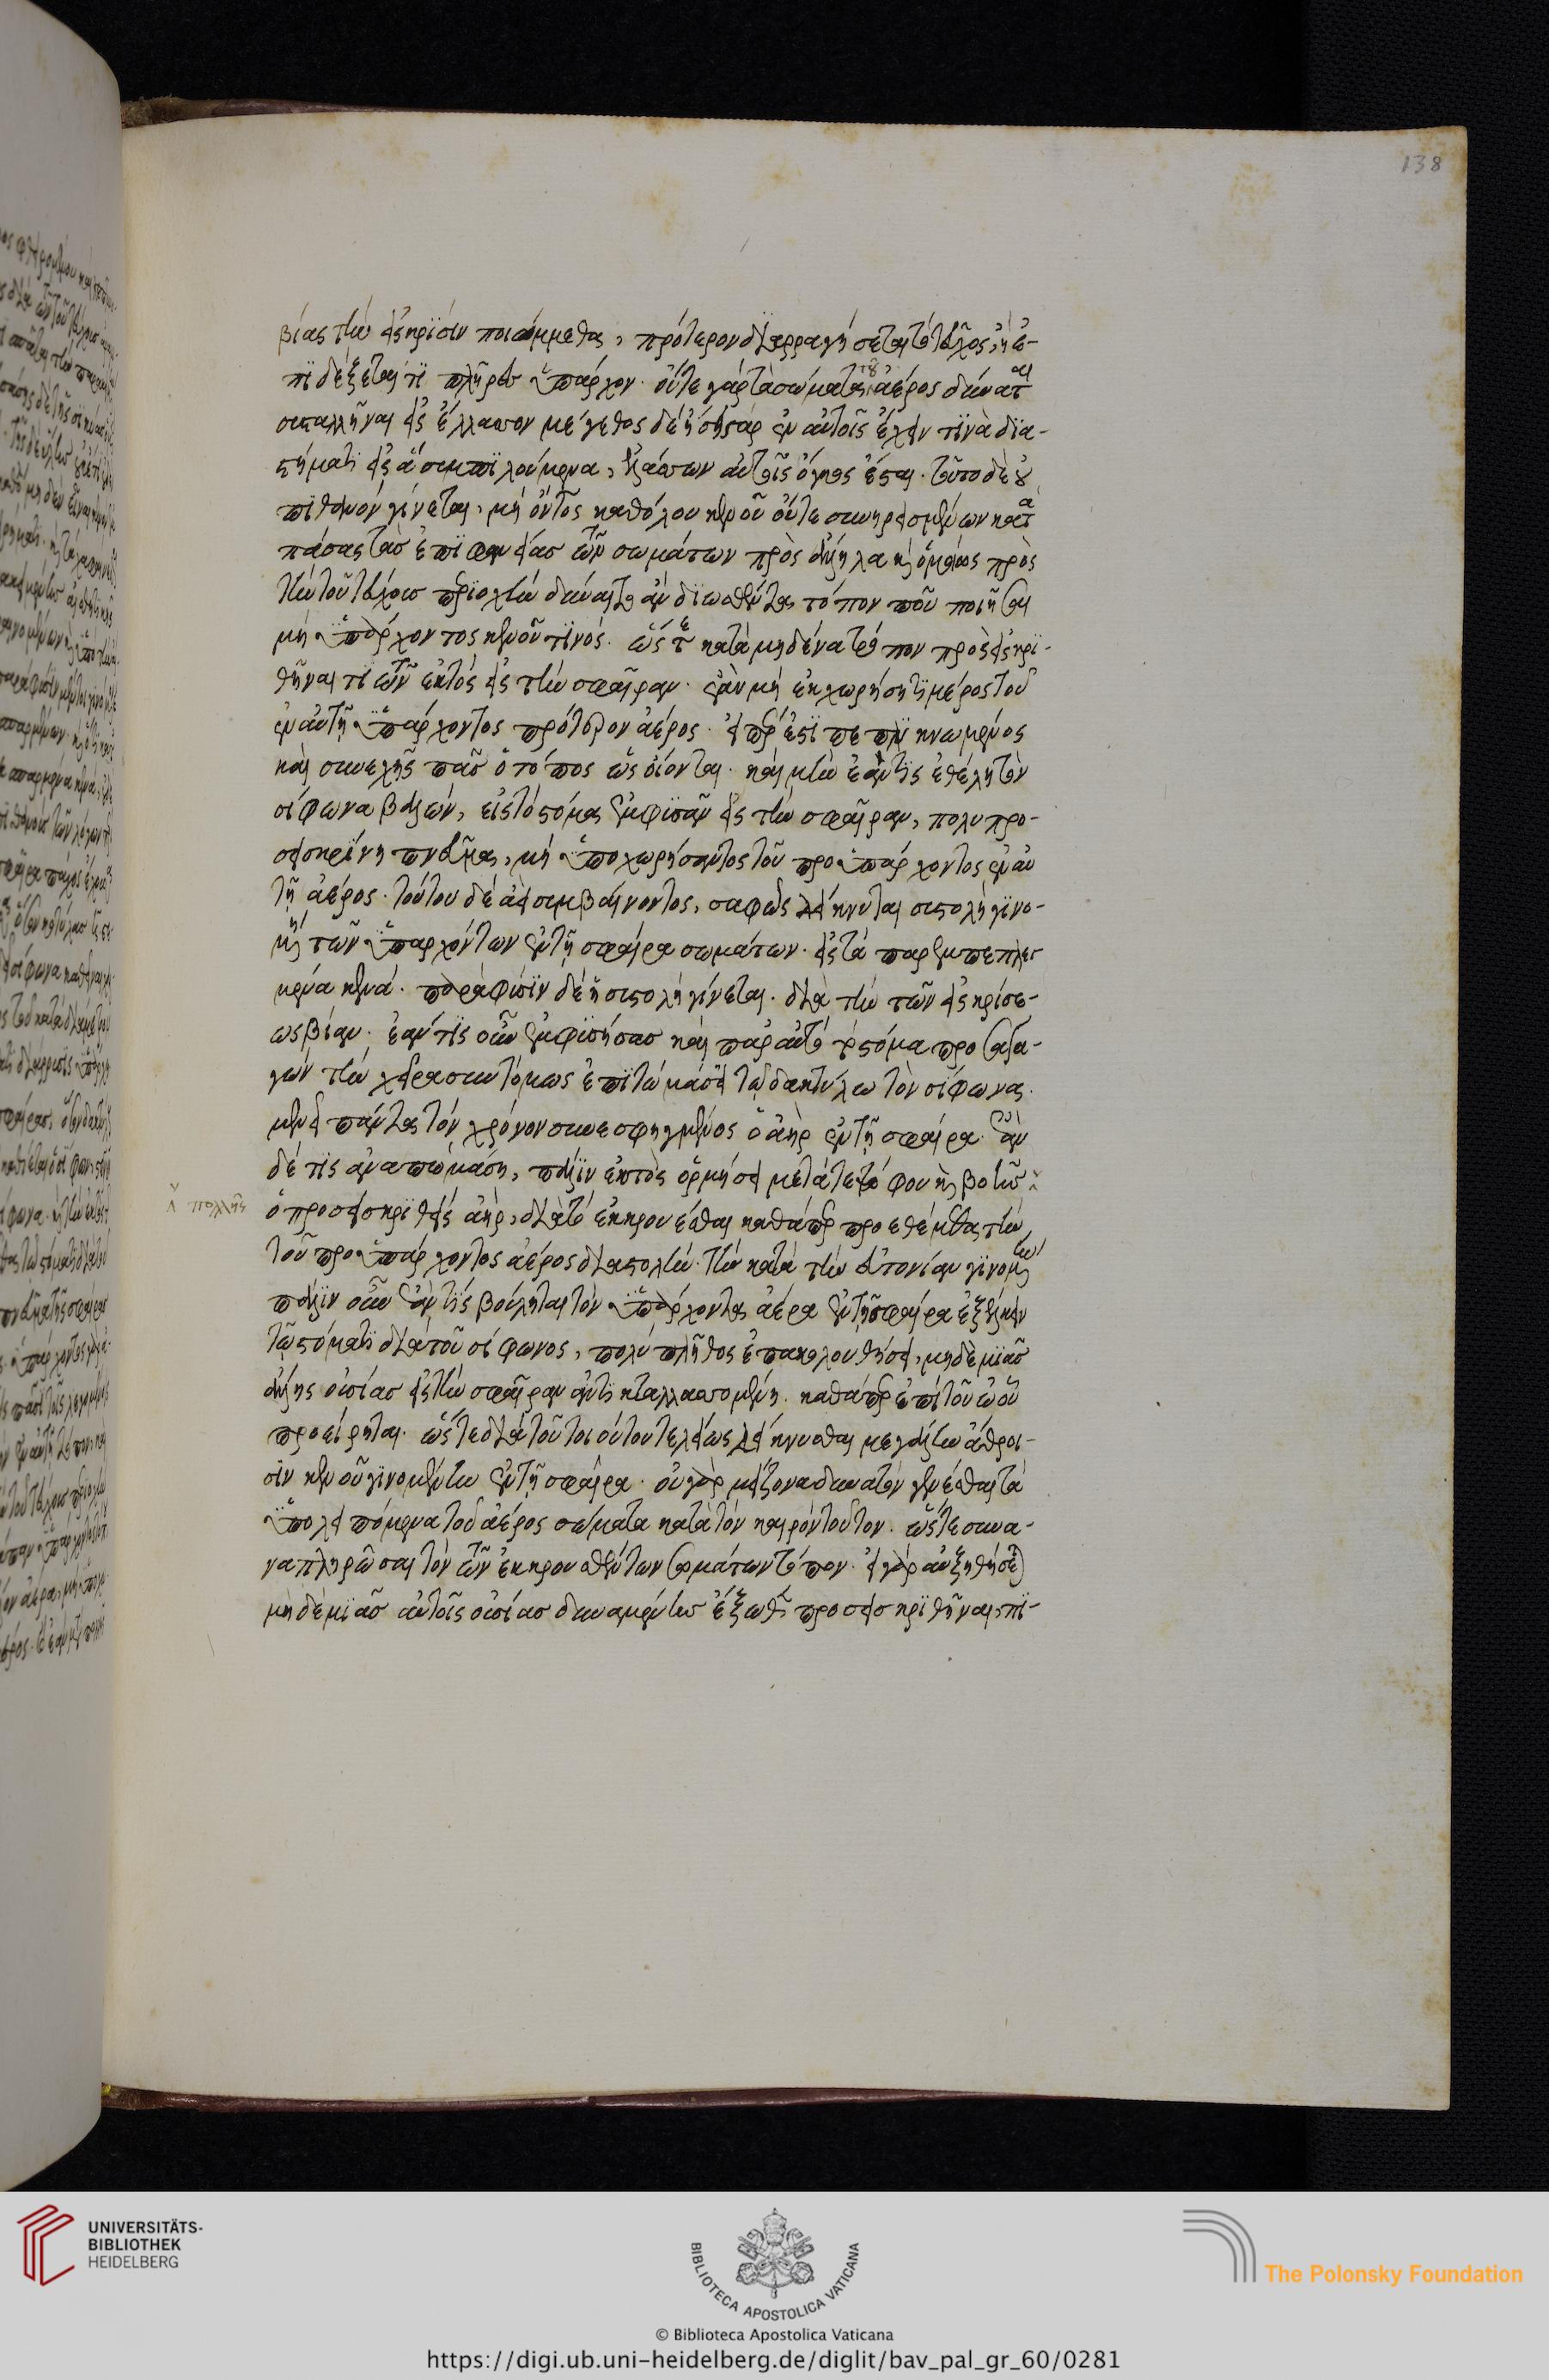 138
βίας τὴν εἴσκρισιν ποιώμεθα, πρότερον διαρραγήσεται τὸ τεῦχος, ἢ ἐ-
πιδέξεταί τι πλῆρες ὑπάρχον. οὔτε γὰρ τὰ σώματα τοῦ ἀέρος δύναται
συσταλῆναι εἰς ἔλασσον μέγεθος δεήσει γὰρ ἐν αὐτοῖς ἔχειν τινὰ δια-
στήματα εἰς ἃ συμπιλούμενα, ἐλάσσων αὐτοῖς ὄγκος ἔσται. τοῦτο δὲ οὐ
πιθανὸν γίνεται, μὴ ὄντος καθόλου κενοῦ οὔτε συνηρεισμένων κατὰ
πάσας τὰς ἐπιφανείας τῶν σωμάτων πρὸς ἄλληλα καὶ ὁμοίως πρὸς
τὴν τοῦ τεύχους περιοχὴν δύναιτο ἂν διωσθέντα τόπον που ποιῆσαι
μὴ ὑπάρχοντος κενοῦ τινός. ὥστε κατὰ μηδένα τόπον προσεισκρι-
θῆναί τι τῶν ἐκτὸς εἰς τὴν σφαῖραν. ἐὰν μὴ ἐκχωρήσῃ τι μέρος τοῦ
ἐν αὐτῇ ὑπάρχοντος πρότερον ἀέρος. εἴπερ ἐστὶ πεπυκνωμένος
καὶ συνεχὴς πᾶς ὁ τόπος ὡς οἴονται. καὶ μὴν ἐάν τις ἐθέλῃ τὸν
σίφωνα βαλών, εἰς τὸ στόμα ἐμφυσᾶν εἰς τὴν σφαῖραν, πολὺ προ-
σεισκρίνῃ πνεῦμα, μὴ ὑποχωρήσαντος τοῦ προυπάρχοντος ἐν αὐ
τῇ ἀέρος. τούτου δὲ ἀεὶ συμβαίνοντος, σαφῶς δείκνυται συστολὴ γινο-
μένη τῶν ὑπαρχόντων ἐν τῇ σφαίρᾳ σωμάτων. εἰς τὰ παρεμπεπλεγ-
μένα κενά. παρὰ φύσιν δὲ ἡ συστολὴ γίνεται. διὰ τὴν τῶν εἰσκρίσε-
ως βίαν. ἐάν τις οὖν ἐμφυσήσας καὶ παρ' αὐτὸ τὸ στόμα προσαγα-
γὼν τὴν χεῖρα συντόμως ἐπιπωμάσει τῷ δακτύλῳ τὸν σίφωνα.
μενεῖ πάντα τὸν χρόνον συνεσφηγμένος ὁ ἀὴρ ἐν τῇ σφαίρᾳ. ἐὰν
δέ τις ἀναπωμάσῃ, πάλιν ἐκτὸς ὁρμήσει μετά τε ψόφου καὶ βοῆς
πολλῆς
ὁ προσεισκριθεὶς ἀήρ, διὰ τὸ ἐκκρούεσθαι καθάπερ προεθέμεθα τὴν
τοῦ προυπάρχοντος ἀέρος διαστολὴν. τὴν κατὰ τὴν εὐτονίαν γινομένην
πάλιν οὖν ἐάν τις βούληται τὸν ὑπάρχοντα ἀέρα ἐν τῇ σφαίρᾳ ἐξέλκειν
τῷ στόματι διὰ τοῦ σίφωνος, πολὺ πλῆθος ἐπακολουθήσει, μηδεμιᾶς
ἄλλης οὐσίας εἰς τὴν σφαῖραν ἀντικαταλλασσομένης. καθάπερ ἐπὶ τοῦ ᾠοῦ
προείρηται. ὥστε διὰ τοῦ τοιούτου τελείως δείκνυσθαι μεγάλην ἄθροι-
σιν κενοῦ γινομένην ἐν τῇ σφαίρᾳ. οὐ γὰρ μείζονα δυνατὸν γενέσθαι τὰ
ὑπολειπόμενα τοῦ ἀέρος σώματα κατὰ τὸν καιρὸν τοῦτον. ὥστε συνα-
ναπληρῶσαι τὸν τῶν ἐκκρουσθέντων σωμάτων τόπον. εἰ γὰρ αὐξηθήσεται
μηδεμιᾶς αὐτοῖς οὐσίας δυναμένης ἔξωθεν προσεισκριθῆναι, πι-
UNIVERSITÄTS-
BIBLIOTHEK
HEIDELBERG
BIBLIOTECA APOSTOLICA VATICANA
The Polonsky Foundation
© Biblioteca Apostolica Vaticana
https://digi.ub.uni-heidelberg.de/diglit/bav_pal_gr_60/0281